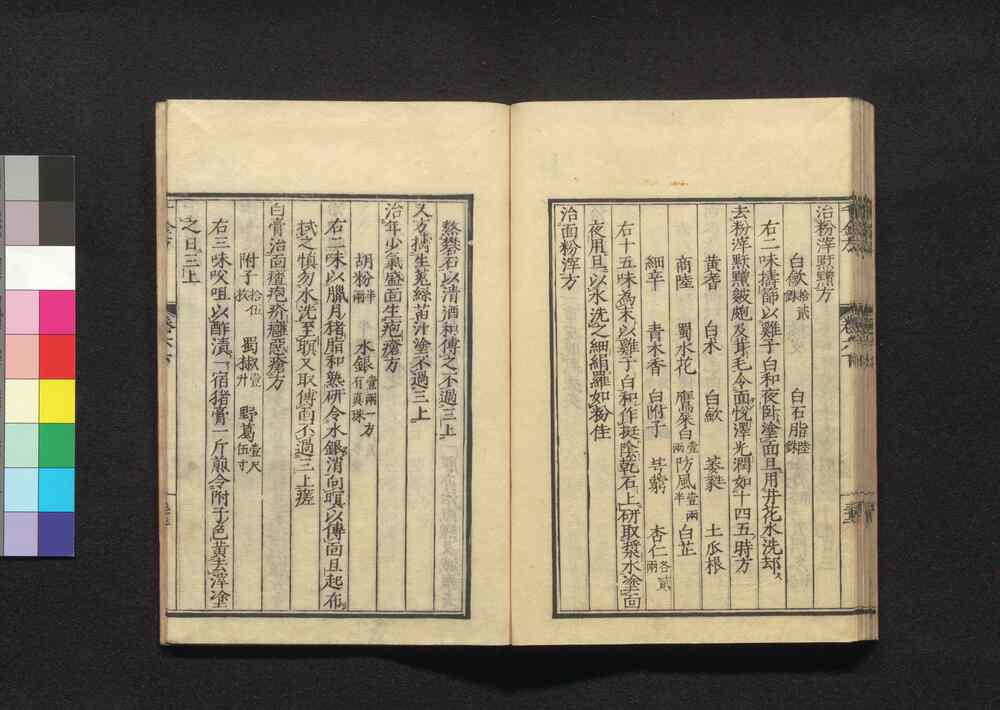 治粉滓䵟𪒟方
白蘞拾貳銖　白石脂陸銖
右二味擣篩以雞子白和夜卧塗面旦用井花水洗却
去粉滓䵟𪒟皺皰及茸毛令面悅澤光潤如十四五時方
黃耆　白朮　白蘞　萎蕤　土瓜根
商陸　蜀水花　鷹屎白壹兩　防風壹兩半　白芷
細辛　青木香　白附子　芎藭　杏仁各貳兩
右十五味為末以雞子白和作挺陰乾石上研取漿水塗面
夜用旦以水洗之細絹羅如粉佳
治面粉滓方
熬礬石以清酒和傅之不過三上
又方擣生菟絲苗汁塗不過三上
治年少氣盛面生皰瘡方
胡粉半兩　水銀壹兩一方有真珠
右二味以臘月猪脂和熟研令水銀消向瞑以傅面旦起布
拭之慎勿水洗至瞑又取傅面不過三上瘥
白膏治面㿀皰疥癰惡瘡方
附子拾伍枚　蜀椒壹升　野葛壹尺伍寸
右三味㕮咀以酢漬一宿猪膏一斤煎令附子色黃去滓塗
之日三上